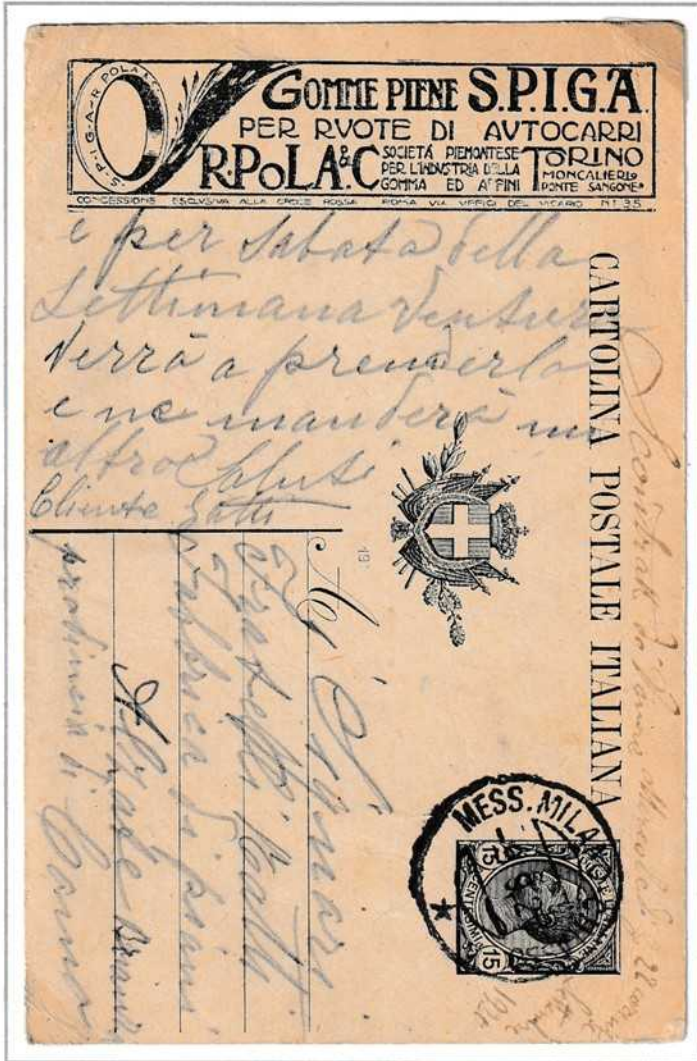 S·P·I·G·A·R·POLA&C
GOMME PIENE S.P.I.G.A.
PER RVOTE DI AVTOCARRI
R.POLA.&C SOCIETÁ PIEMONTESE PER L'INDVSTRIA DELLA GOMMA ED AFFINI TORINO MONCALIERI PONTE SANGONE
CONCESSIONE ESCLVSIVA ALLA CROCE ROSSA ROMA VIA VFFICI DEL VICARIO N.I 35
e per Sabata della
Settimana Ventura
Verrà a prenderlo
e ne manderà un
altro Saluti
Cliente Gatti
CARTOLINA POSTALE ITALIANA
191
Ai Signori
Fratelli Gatti
Fabbrica di
Alzate
provincia di Como
MESS. MILANO
15 15